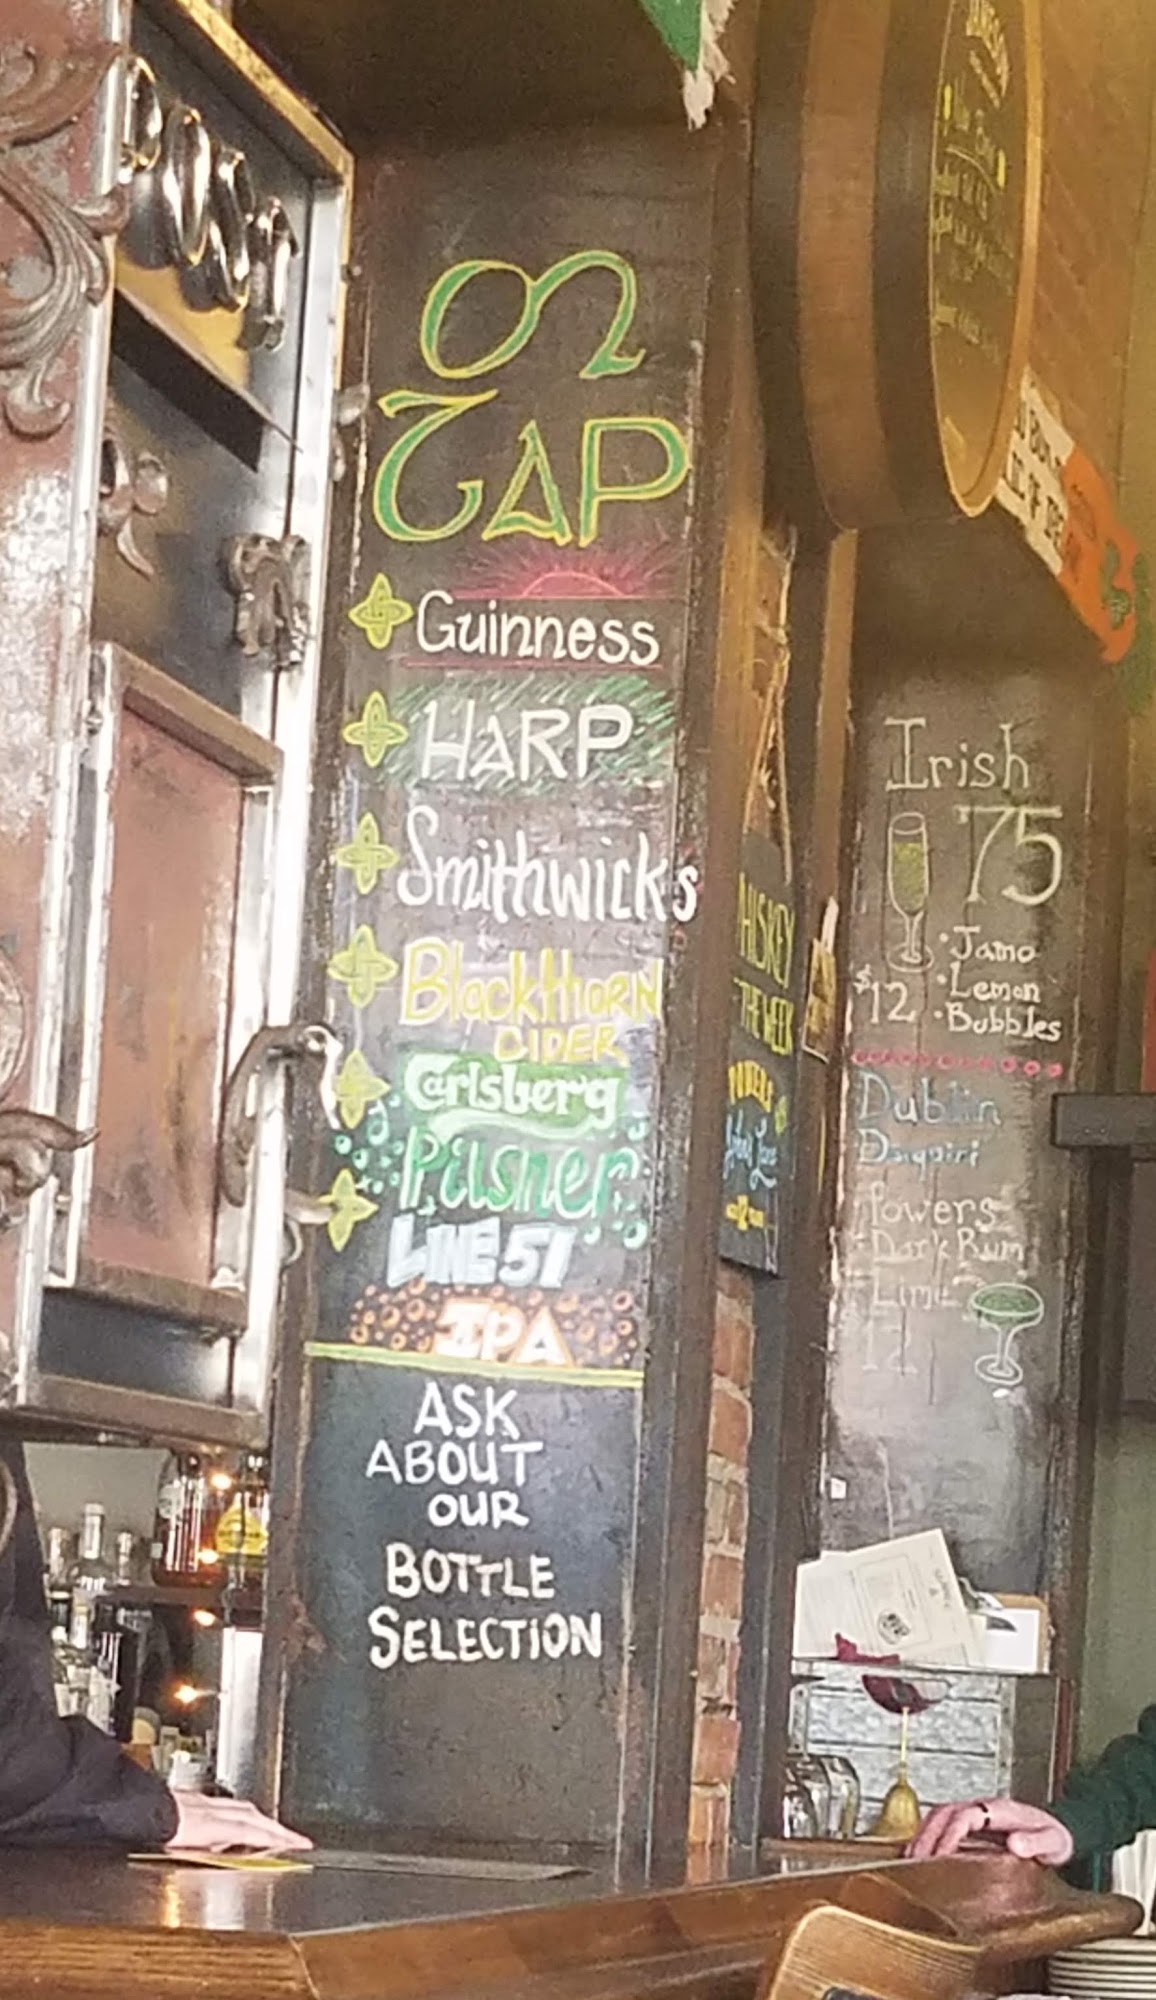 On
TAP
Guinness
HARP
Smithwick's
Blackthorn
CIDER
Carlsberg
Pilsner
LINE 51
IPA
ASK
ABOUT
OUR
BOTTLE
SELECTION
THE WEEK
POWERS
John's Lane
Irish
75
• Jamo
• Lemon
$12 • Bubbles
Dublin
Daquiri
Powers
Dark Rum
Lime
12